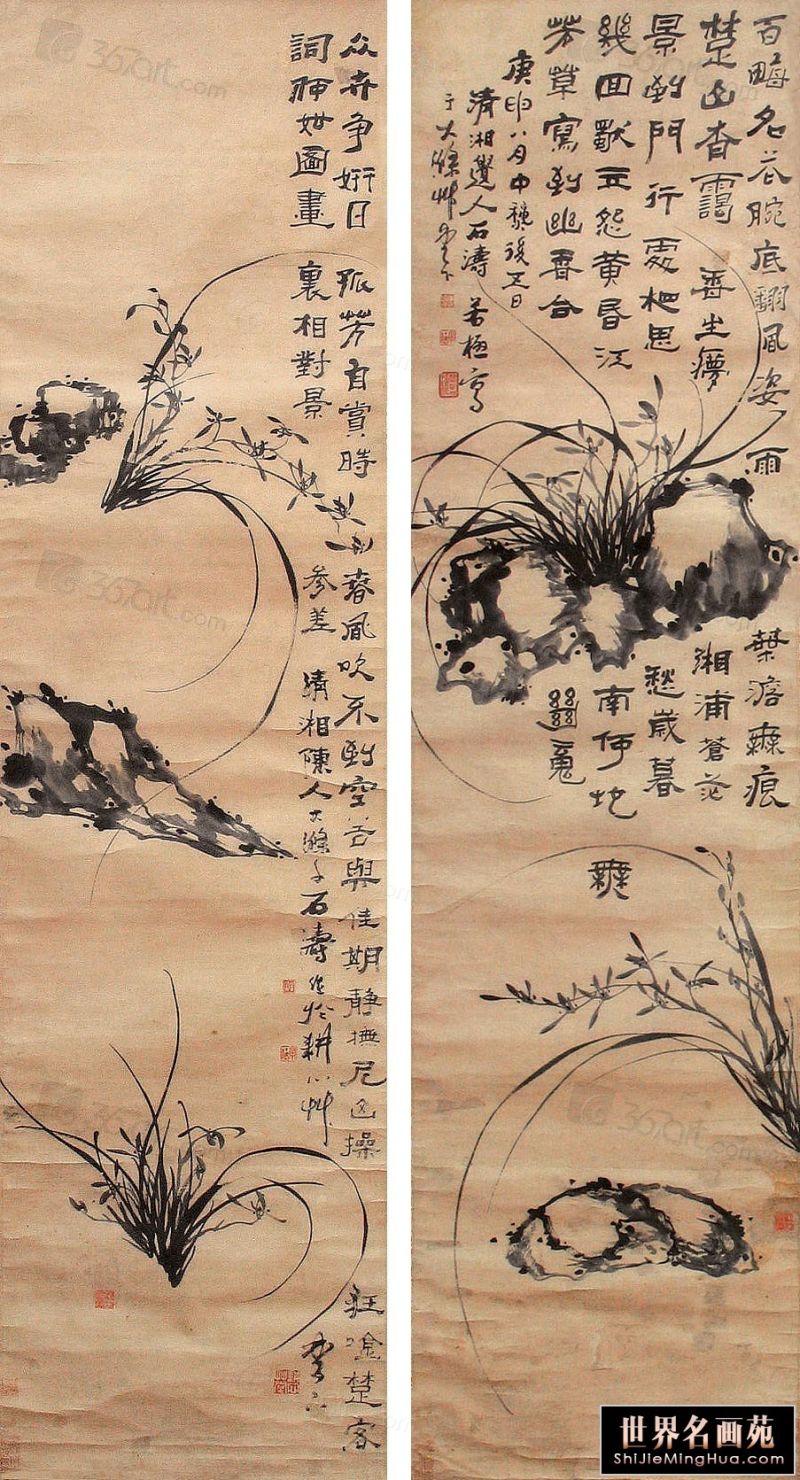 百畮名花腕底翻風姿雨葉澹無痕
楚山杳靄 坐夢湘浦蒼茫
景到門行處 思愁歲暮
幾回 立怨黃昏江南何地無
芳草寫到幽香合 魂
庚申八月中龝後五日
清湘遺人石濤若極寫
于大滌艸堂下
众卉争妍日孤芳自賞時春風吹不到空谷與佳期靜撫尼山操狂唫楚客
詞 如圖畫裏相對景參差
清湘陳人大滌子石濤作於耕心艸堂下
世界名画苑
ShiJieMingHua.com
367art.com